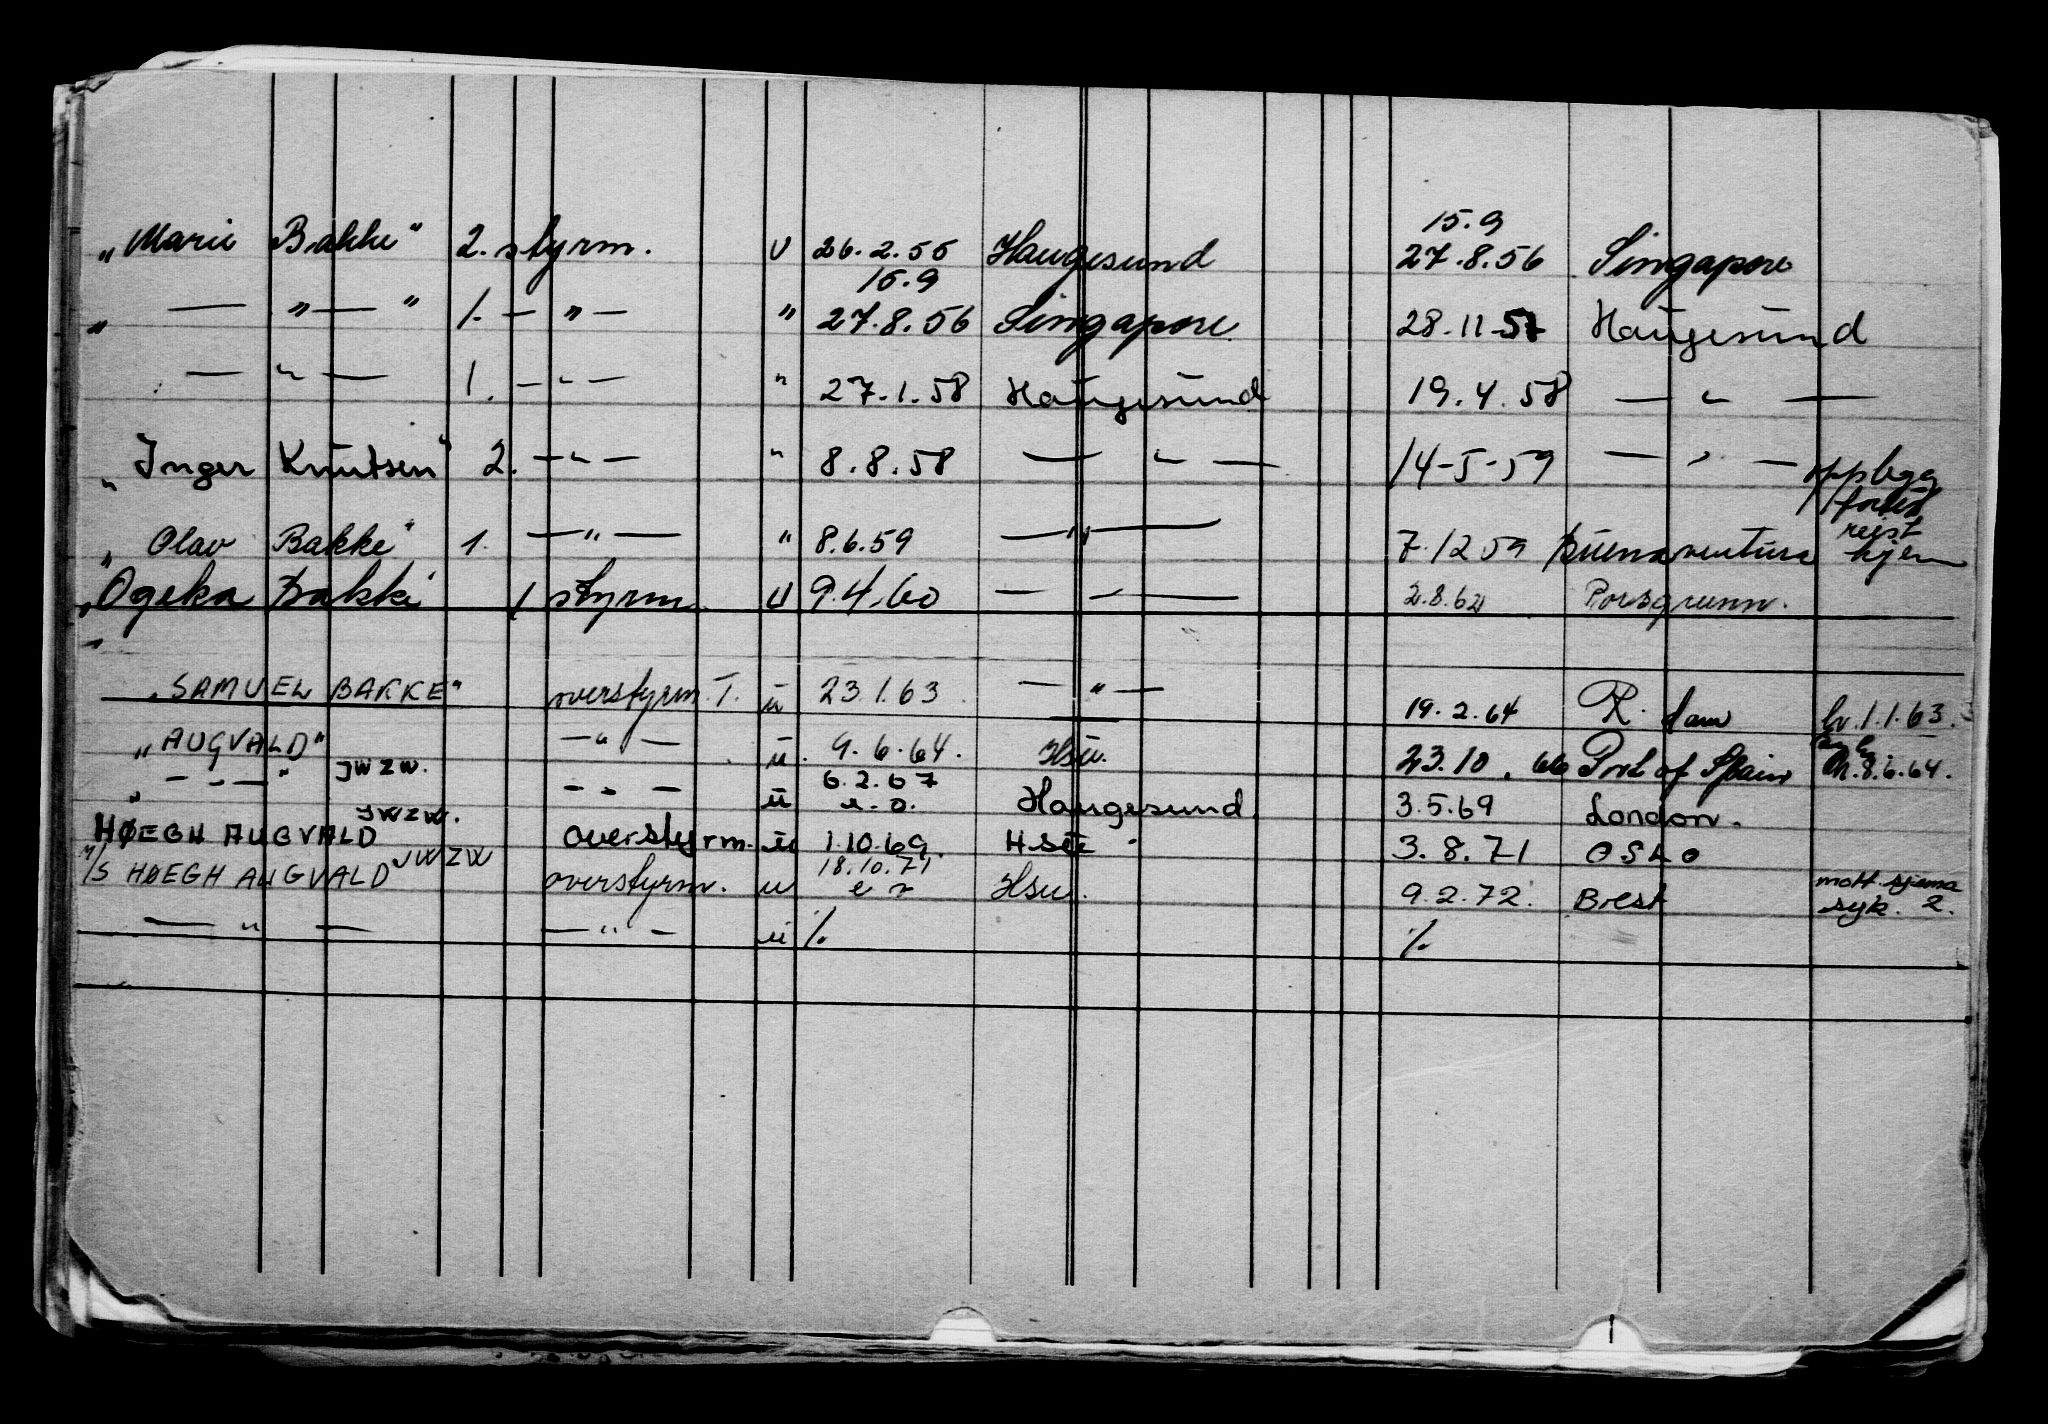 15.9
„Marie Bakke" 2. styrm. u 26.2.55 Haugesund 27.8.56 Singapore
15.9
„ — " — " 1. — " — " 27.8.56 Singapore 28.11.57 Haugesund
— " — 1. — " — " 27.1.58 Haugesund 19.4.58 — " —
„Inger Knutsen" 2. — " — " 8.8.58 — " — 14-5-59 — " — oppbygg
„Olav Bakke" 1. — " — " 8.6.59 — " — 7.12 59 Buenaventura reist hjem
„Ogeka Bakke 1 styrm. u 9.4.60 — " — 2.8.62 Porsgrunn.
„SAMUEL BAKKE" overstyrm. T. u 23.1.63 — " — 19.2.64 R.dam hv.1.1.63.
„AUGVALD" — " — u. 9.6.64. Hsu. 23.10.66 Port of Spain 8.6.64.
„ — " — " JWZW. — " — u 6.2.67 Haugesund 3.5.69 London.
HØEGH AUGVALD JWZW. overstyrm. u 1.10.69 Hsu. 3.8.71 OSLO
M/S HØEGH AUGVALD JWZW overstyrm. u 18.10.71 Hsu. 9.2.72. Brest mott. sjema syk. 2.
— " — — " — u %. %.